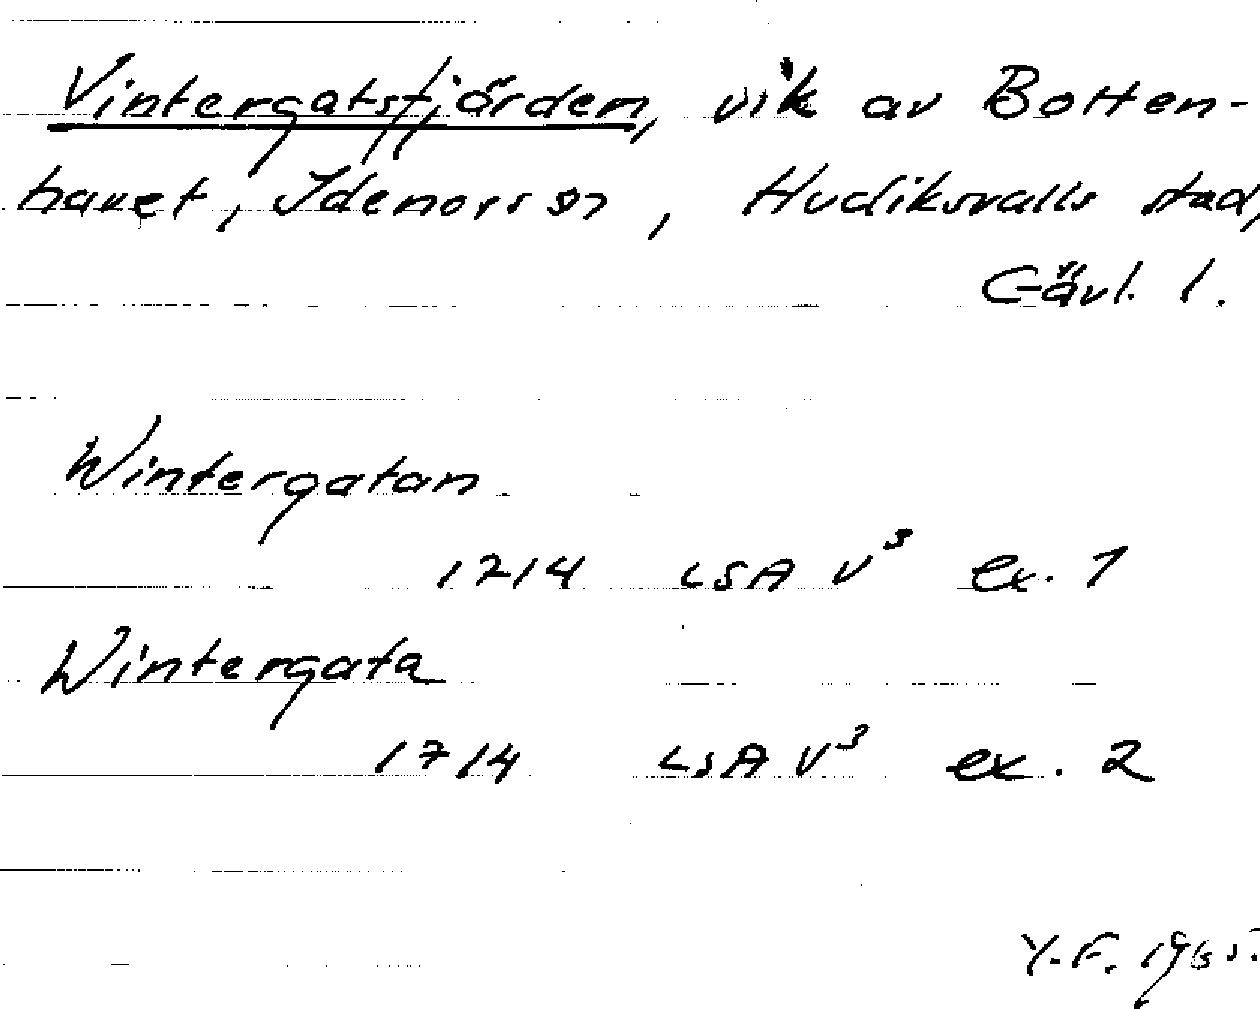 Vintergatsfjörden, vik av Botten-
havet, Idenors sn, Hudiksvalls stad,
Gävl. l.
Wintergatan
1714 LSA V³ ex. 1
Wintergata
1714 LSA V³ ex. 2
Y.F. 1965.